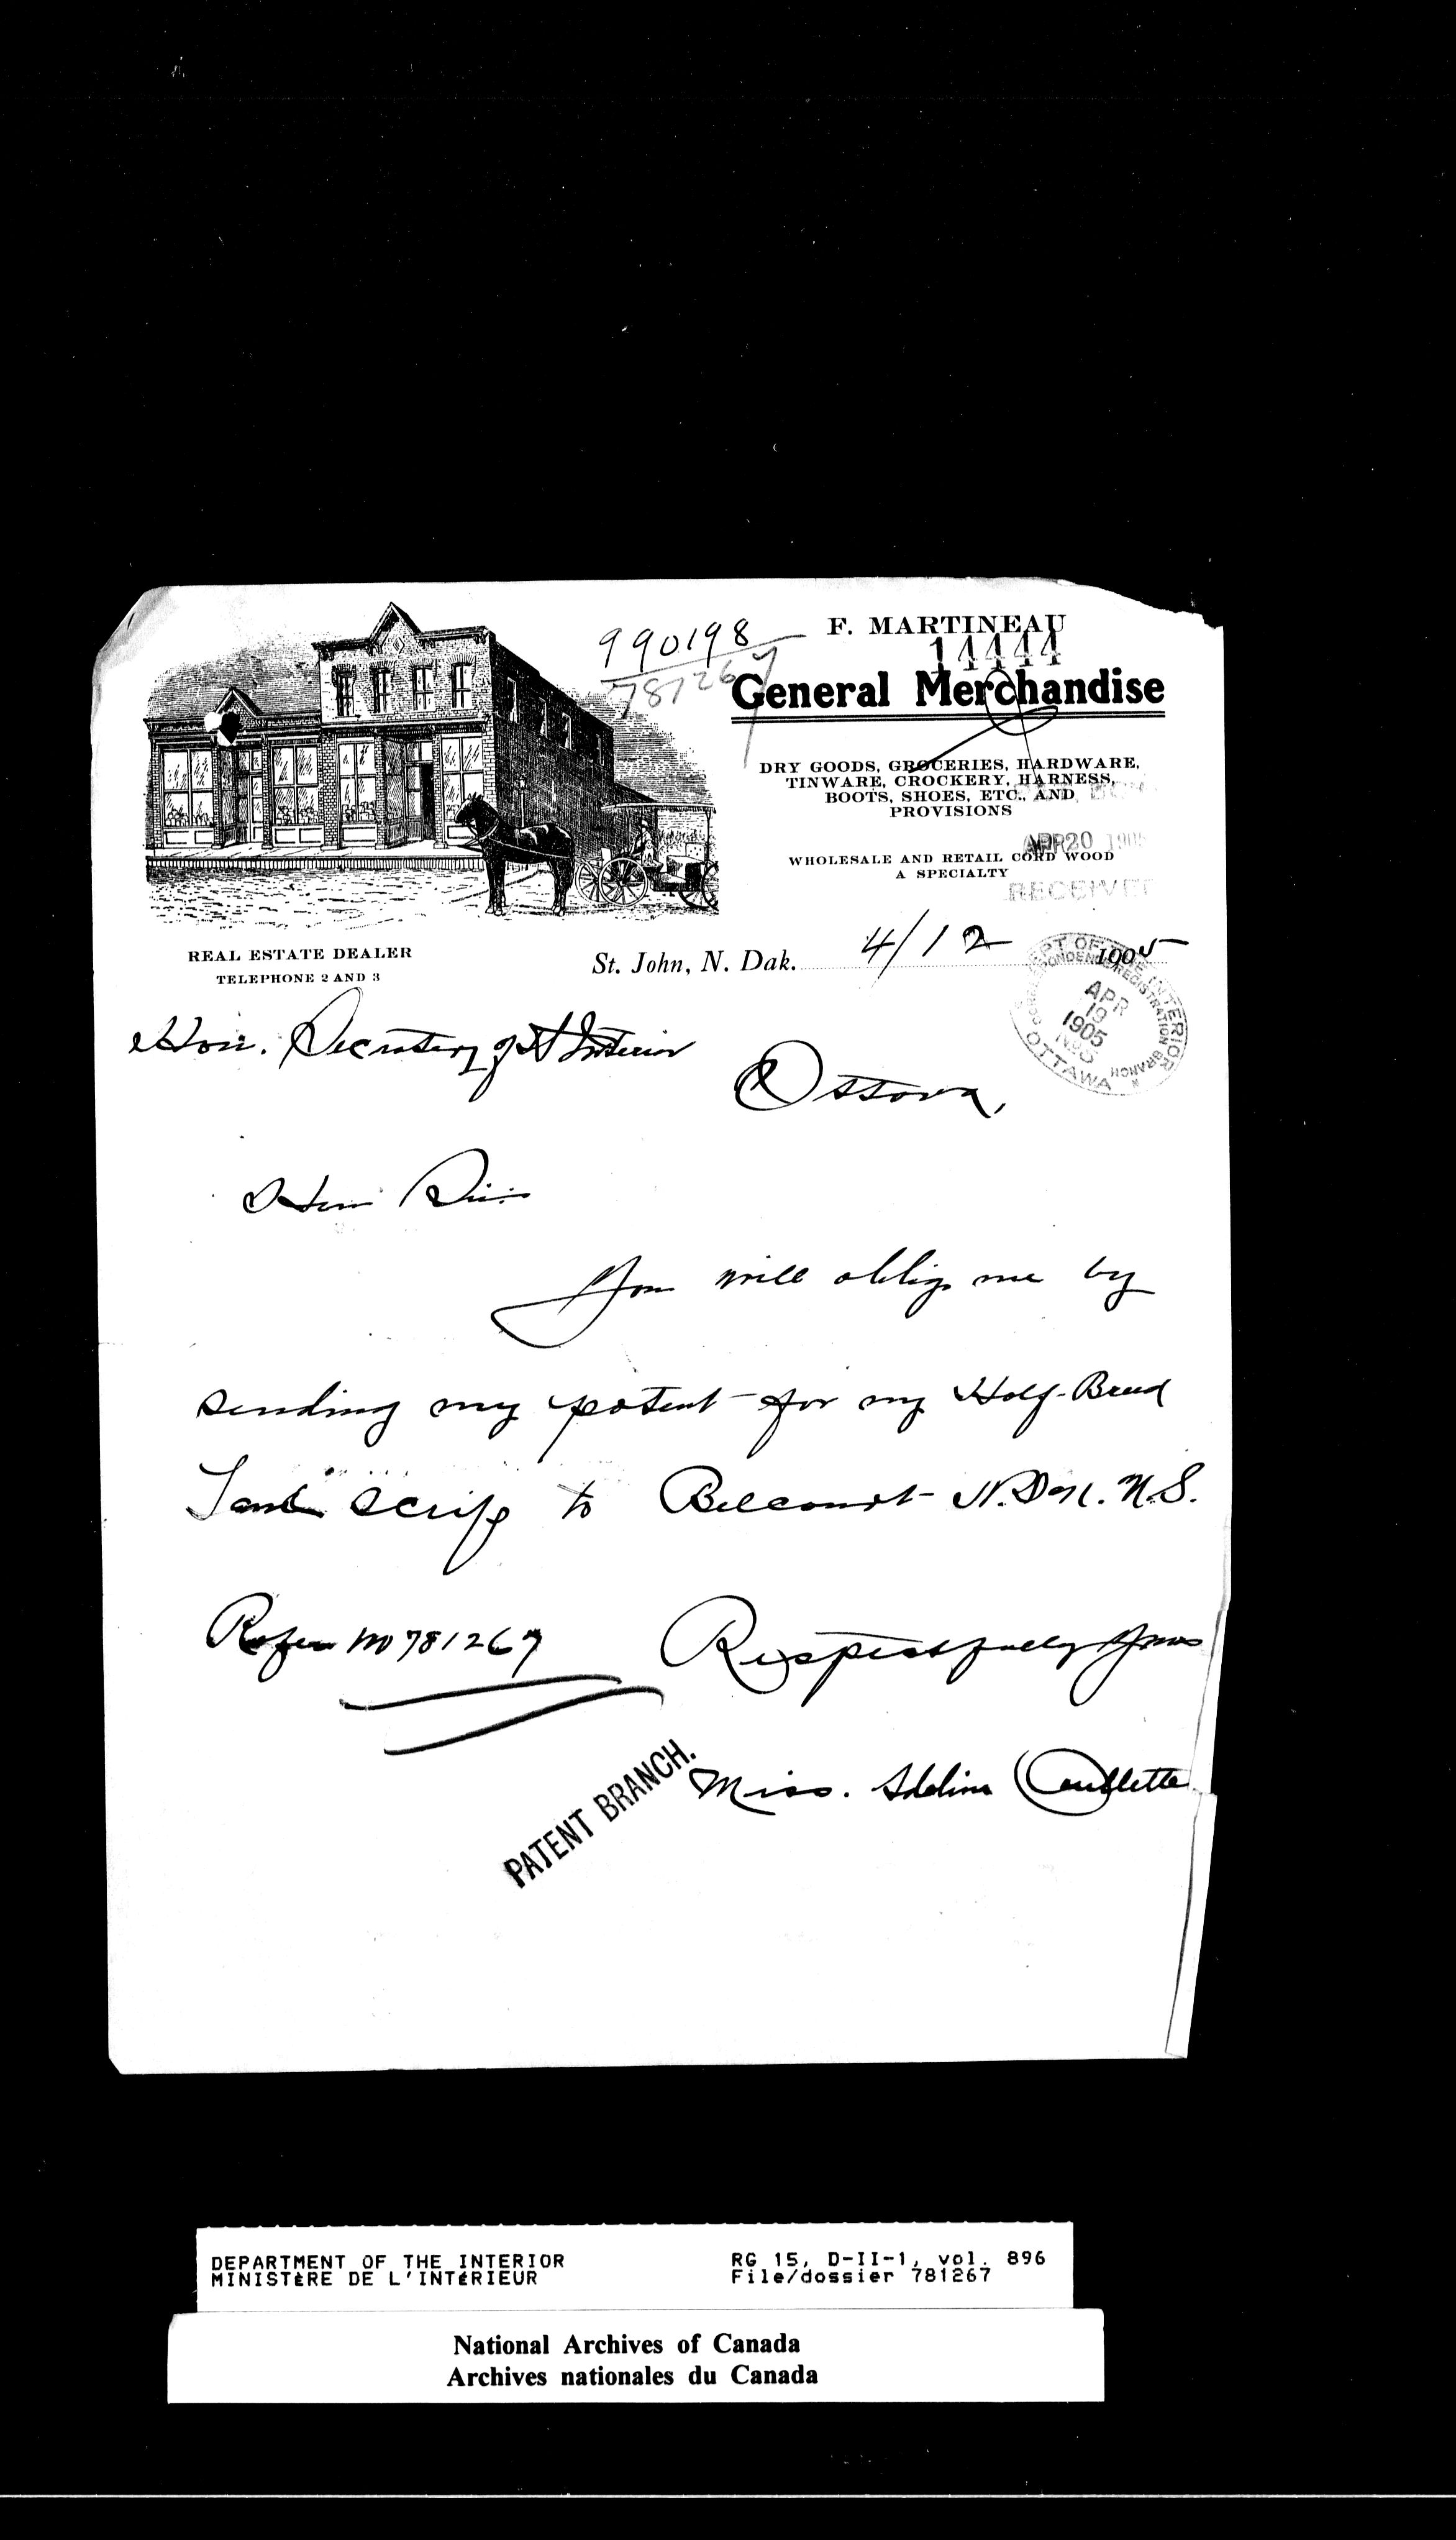 990198
781267
F. MARTINEAU
14444
General Merchandise
DRY GOODS, GROCERIES, HARDWARE,
TINWARE, CROCKERY, HARNESS,
BOOTS, SHOES, ETC., AND
PROVISIONS
APR 20 1905
WHOLESALE AND RETAIL CORD WOOD
A SPECIALTY
RECEIVED
REAL ESTATE DEALER
TELEPHONE 2 AND 3
St. John, N. Dak. 4/12 1905
DEPT OF THE INTERIOR
CORRESPONDENCE REGISTRATION BRANCH
APR
19
1905
OTTAWA
Hon. Secretary of Interior
Ottova,
Hon Sir
You will oblige me by
sending my patent for my Half-Breed
Land Scrip to Belcourt N.D.
Refer no 781267 Respectfully Yours
Miss. Adelina Ouellette
PATENT BRANCH.
DEPARTMENT OF THE INTERIOR
MINISTÈRE DE L'INTÉRIEUR
RG 15, D-II-1, vol. 896
File/dossier 781267
National Archives of Canada
Archives nationales du Canada